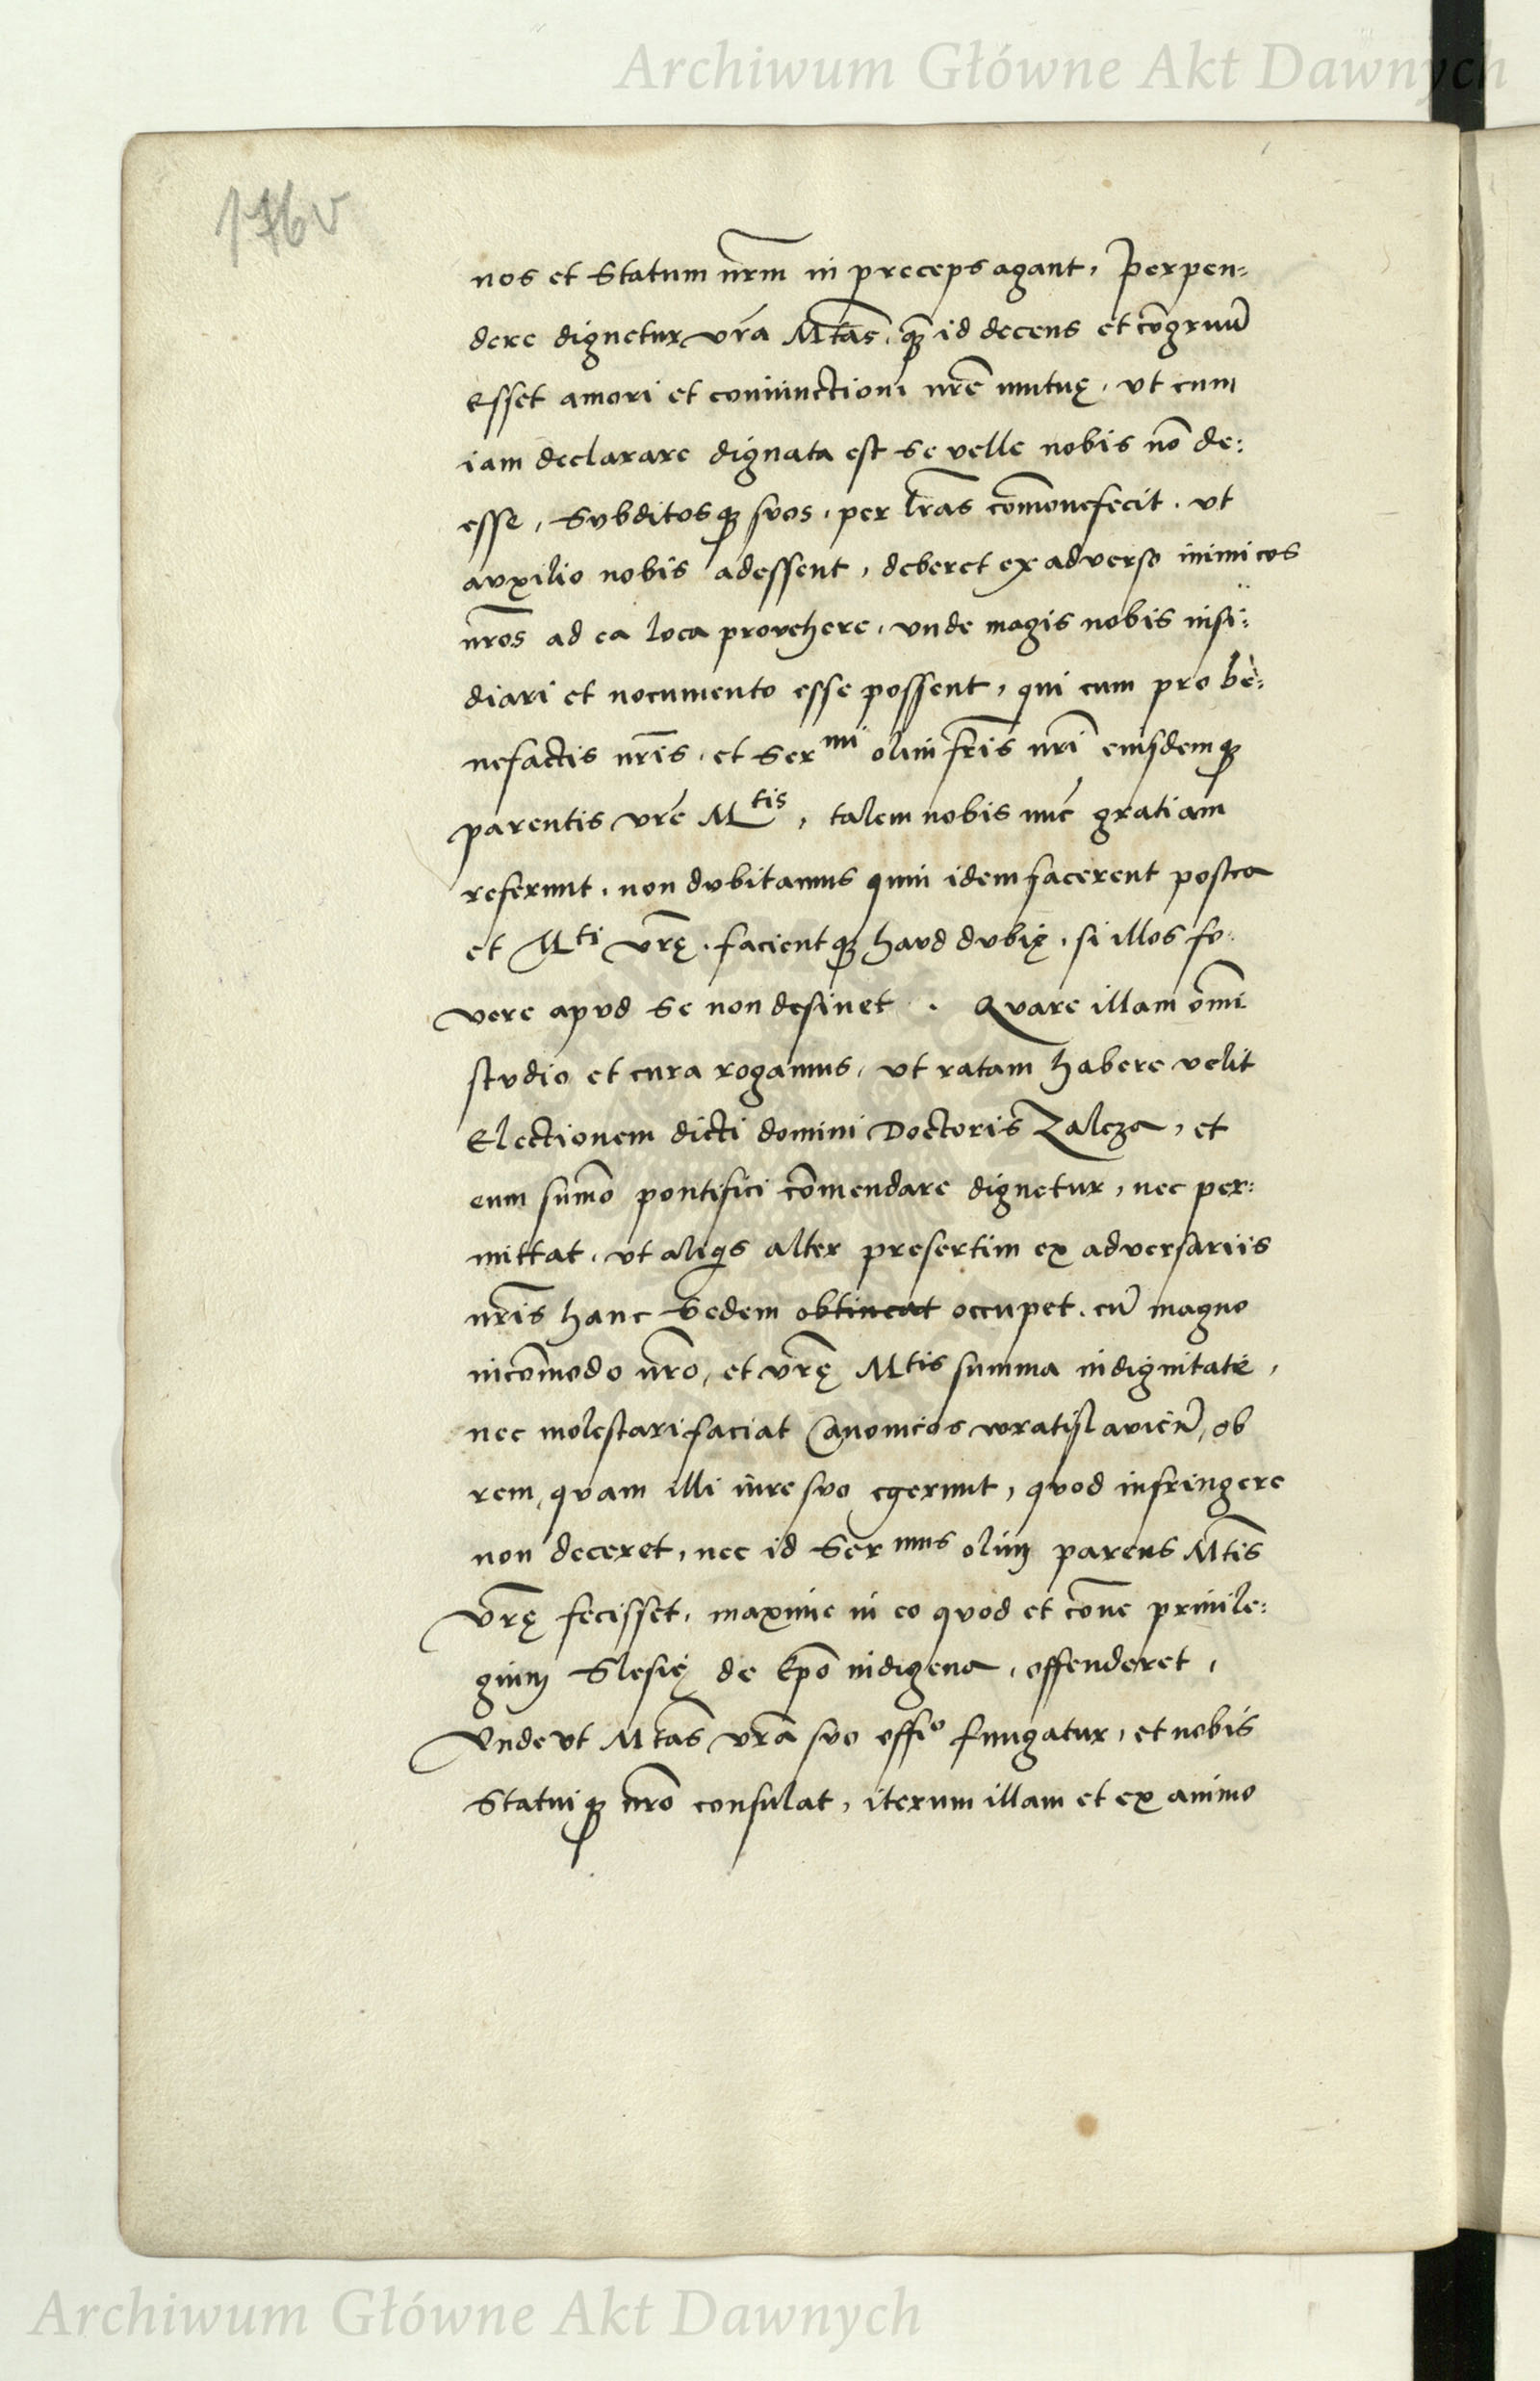 Archiwum Główne Akt Dawnych
176v
nos et Statum nr̄m in preceps agant, Perpen=
dere dignetur vr̄a Mtas, q̄ȝ id decens et cōgruū
esset amori et coniunctioni nr̄e mutuę, vt cum
iam declarare dignata est se velle nobis nō de:
esse, Svbditosqȝ svos, per lr̄as cōmonefecit, vt
avxilio nobis adessent, deberet ex adverso inimicos
nr̄os ad ea loca provehere, vnde magis nobis insi:
diari et nocumento esse possent, qui cum pro be:
nefactis nr̄is, et Ser mi olim fr̄is nr̄i eiusdemqȝ
parentis vr̄e M tis, talem nobis nūc gratiam
referunt, non dvbitamus quin idem facerent postea
et M ti vr̄ę, facientqȝ havd dvbię, si illos fo:
vere apvd se non desinet. Qvare illam om̄i
stvdio et cura rogamus, vt ratam habere velit
Electionem dicti domini Doctoris Zalcza, et
eum sum̄o pontifici cōmendare dignetur, nec per:
mittat, vt aliqis alter presertim ex adversariis
nr̄is hanc Sedem obtineat occupet, cū magno
incōmodo nr̄o, et vr̄ę Mtis summa indignitate,
nec molestari faciat Canonicos wratislavień, ob
rem, qvam illi iure svo egerunt, qvod infringere
non deceret, nec id Ser mus olim parens Mtis
vr̄ę fecisset, maxime in eo qvod et cōne priuile:
gium Slesię de Ep̄o indigena, offenderet,
Vnde vt Mtas vr̄a svo offi o fungatur, et nobis
Statuiqȝ nr̄o consulat, iterum illam et ex animo
Archiwum Główne Akt Dawnych